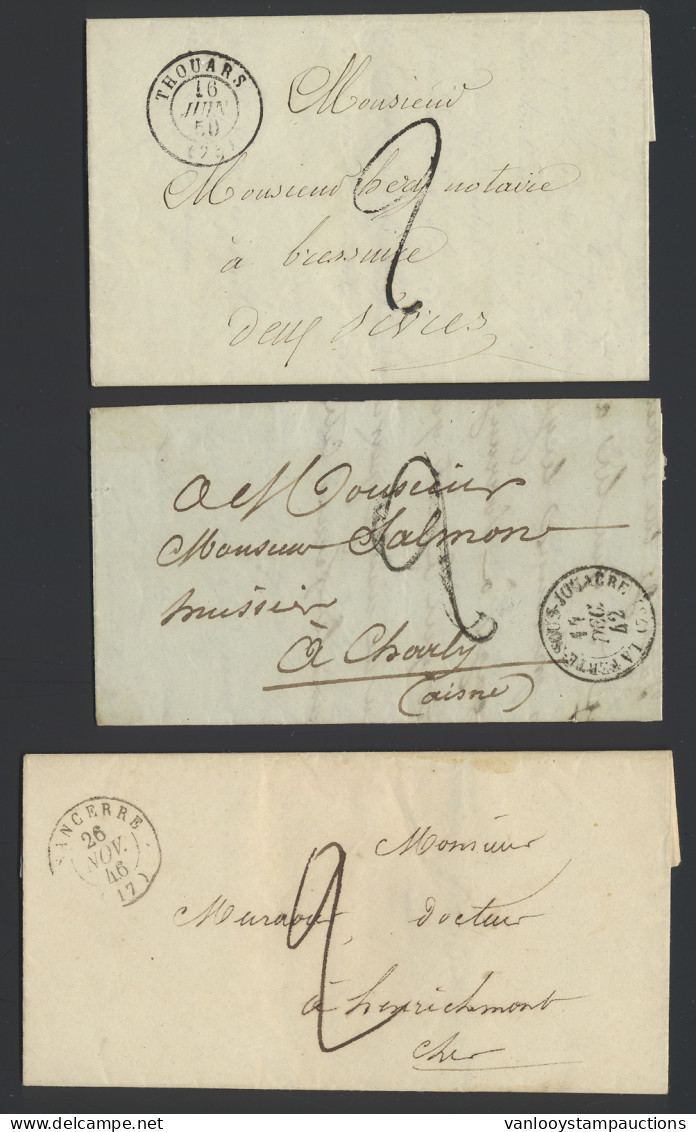 THOUARS
16
JUIN
50
Monsieur
Monsieur notaire
2
à bressuire
deux sèvres
a Monsieur
Monsieur Salmon
2
huissier
à Charly
(aisne)
LA FERTE-SOUS-JOUARRE
14
DEC
42
SANCERRE
26
NOV.
46
(17)
Monsieur
docteur
2
à henrichmont
cher
delcampe.net
vanlooystampauctions